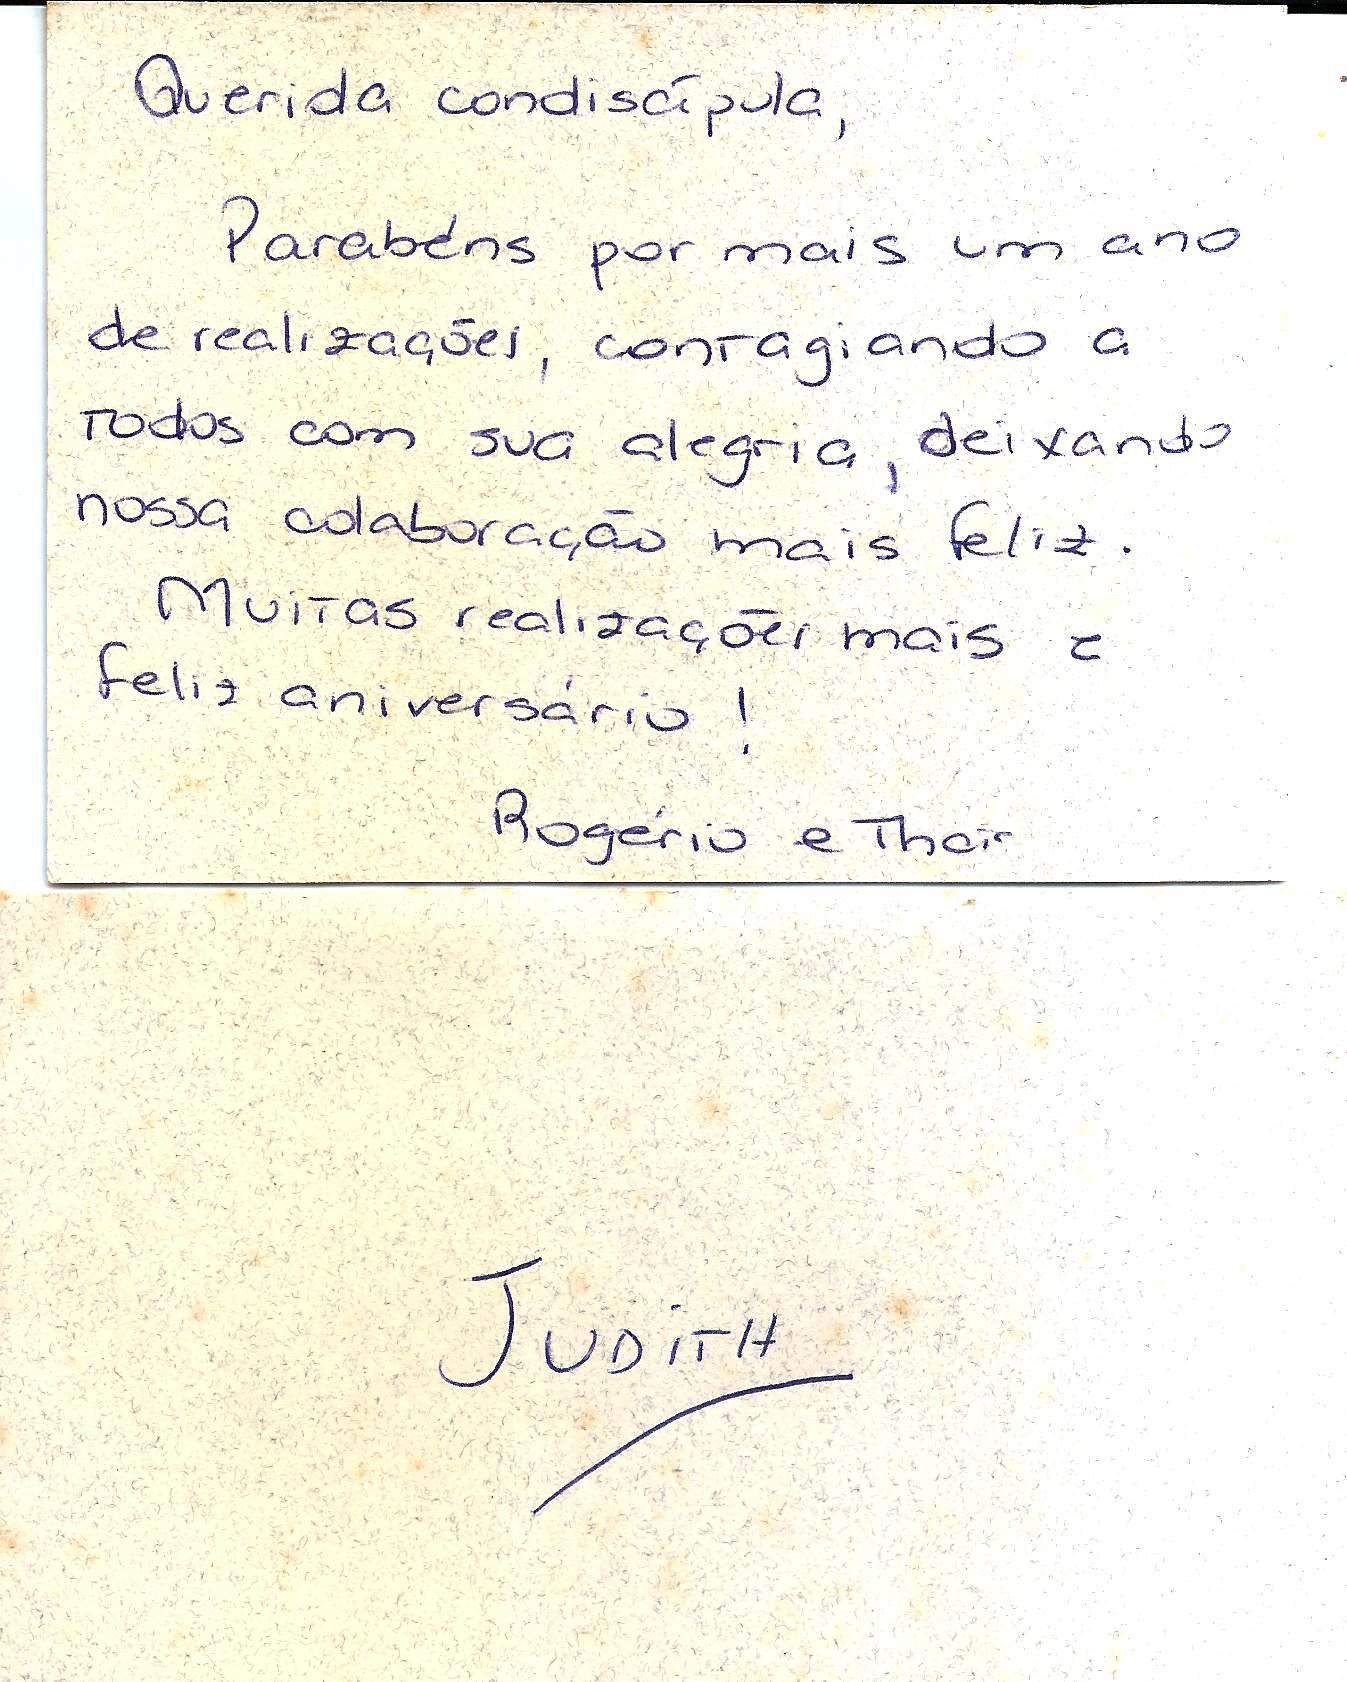 Querida condiscípula,
Parabéns por mais um ano
de realizações, contagiando a
todos com sua alegria, deixando
nossa colaboração mais feliz.
Muitas realizações mais e
feliz aniversário!
Rogério e Thaís
JUDITH